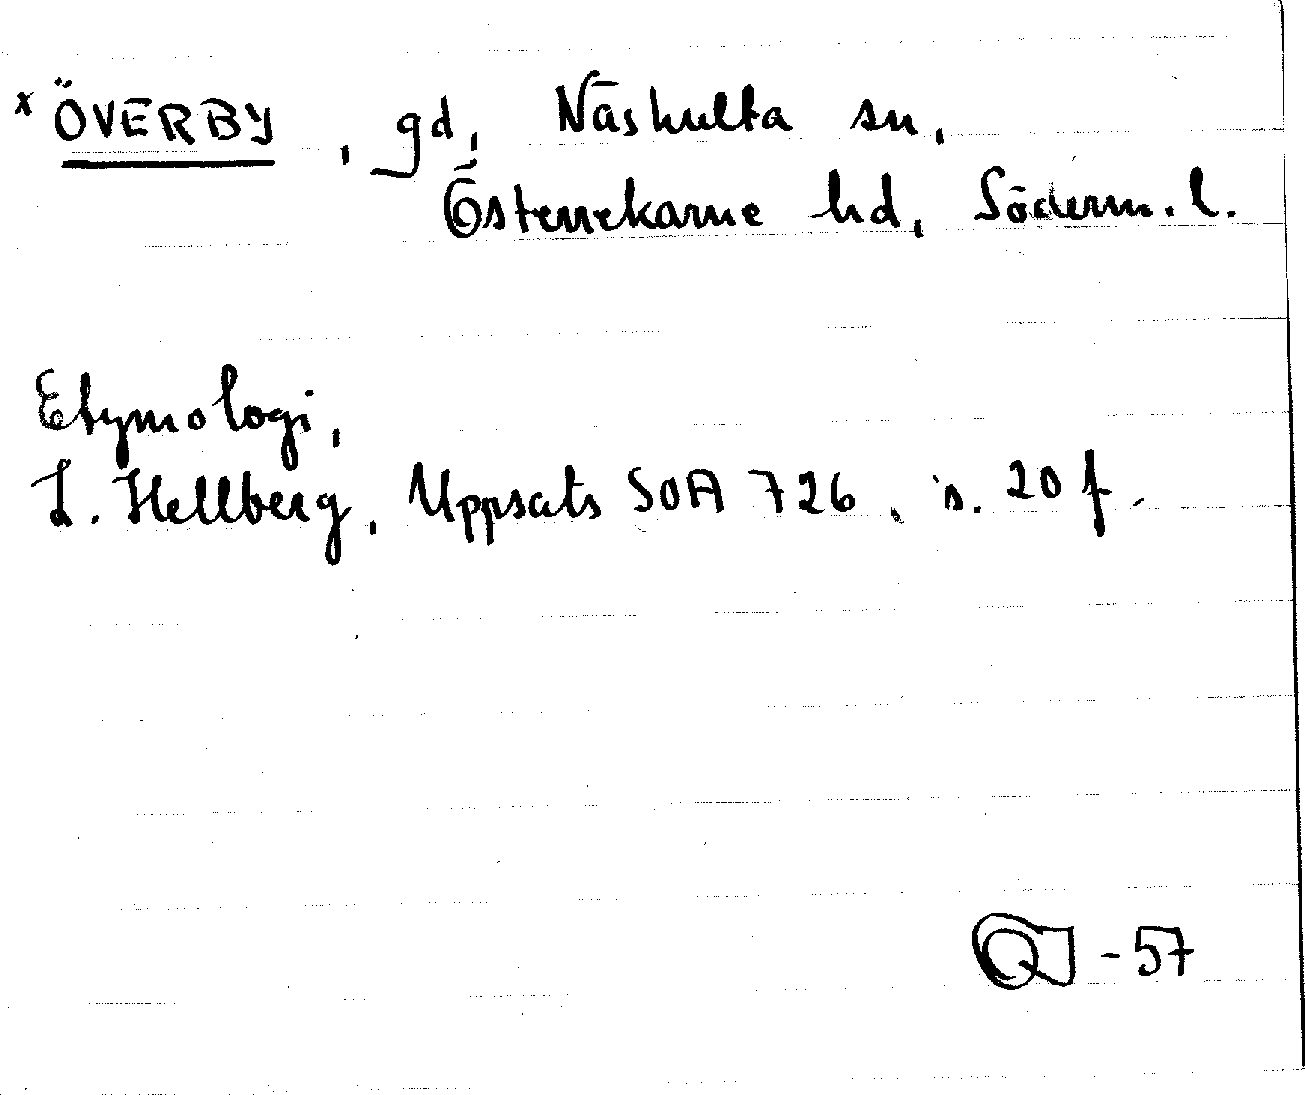 x ÖVERBY, gd, Näshulta sn,
Österrekarne hd, Söderm. l.
Etymologi,
L. Hellberg, Uppsats SOA 726, s. 20 f.
-57